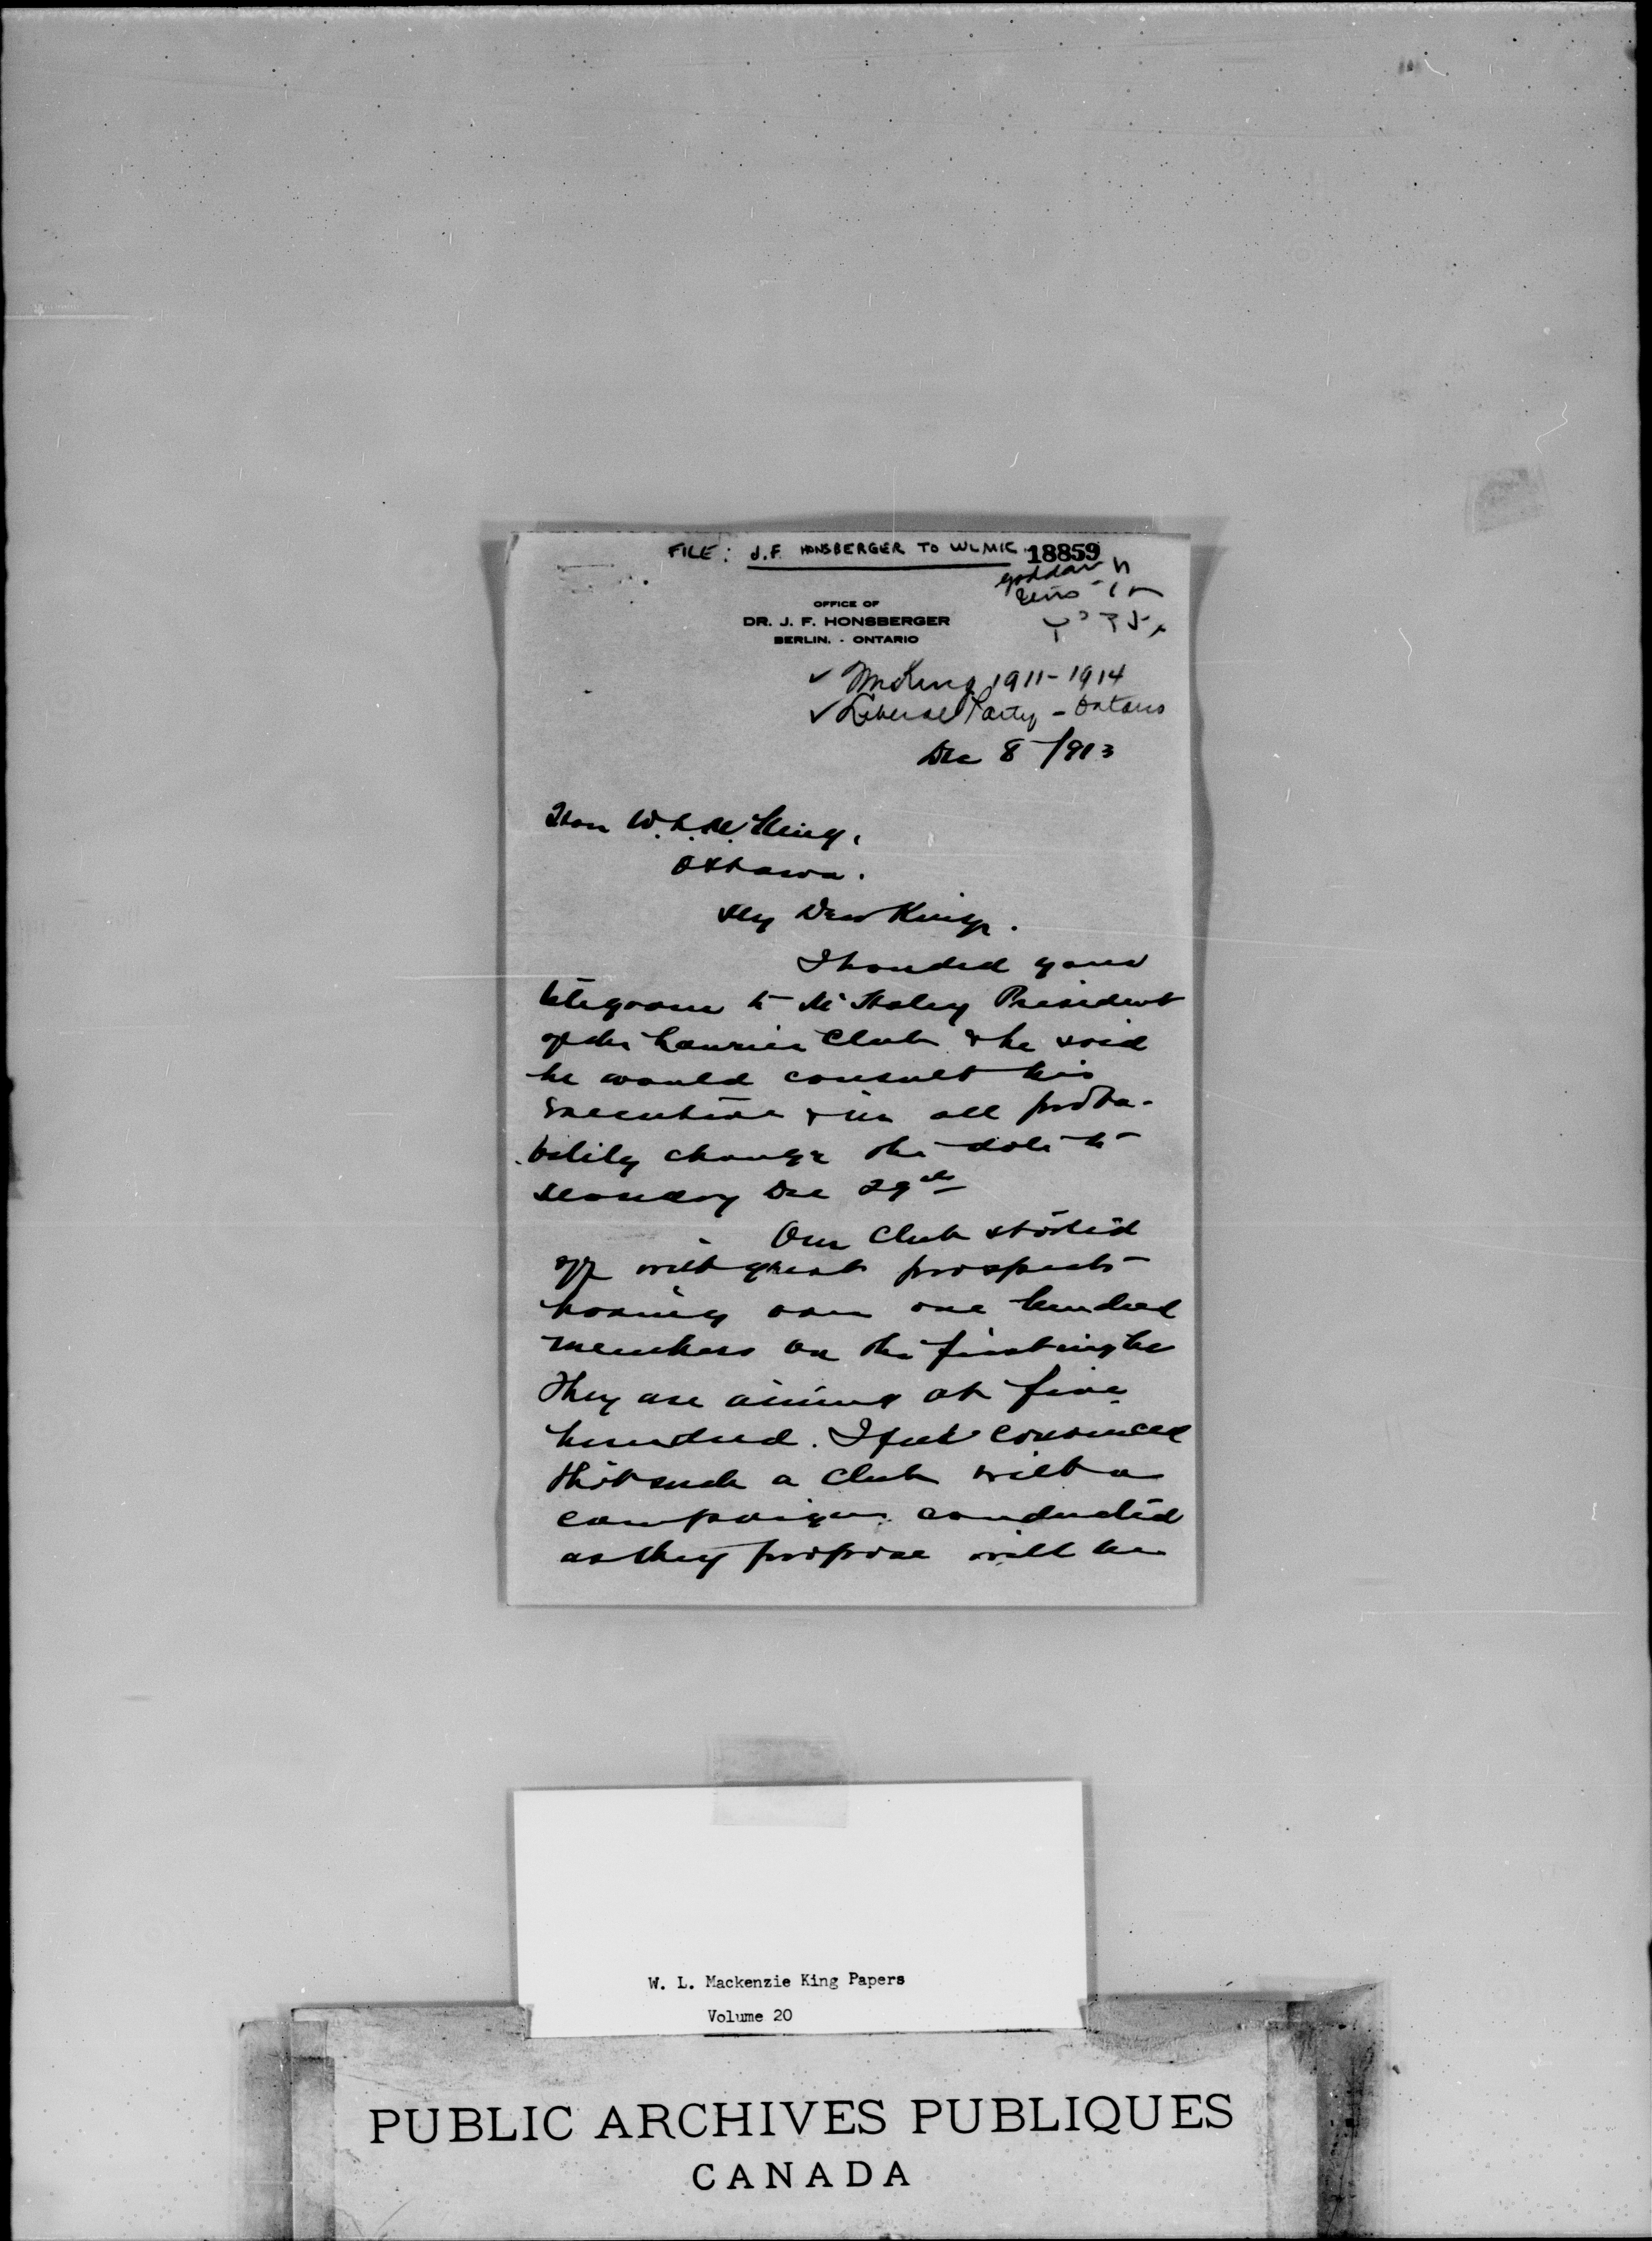 FILE: J.F. HONSBERGER TO WLMK 18859
OFFICE OF
DR. J. F. HONSBERGER
BERLIN. - ONTARIO
✓ 1911-1914
✓ Liberal Party - Ontario
Dec 8/1913
Hon W.L.M. King,
Ottawa.
My Dear King.
I handed your
telegram to Mr Haley President
of the Laurier Club & he said
he would consult his
executive & in all proba-
bility change the date to
Monday Dec 29th
Our Club started
off with great prospects
having over one hundred
members on the first night
They are aiming at five
hundred. I feel convinced
that such a club with a
campaign conducted
as they propose will be
W. L. Mackenzie King Papers
Volume 20
PUBLIC ARCHIVES PUBLIQUES
CANADA